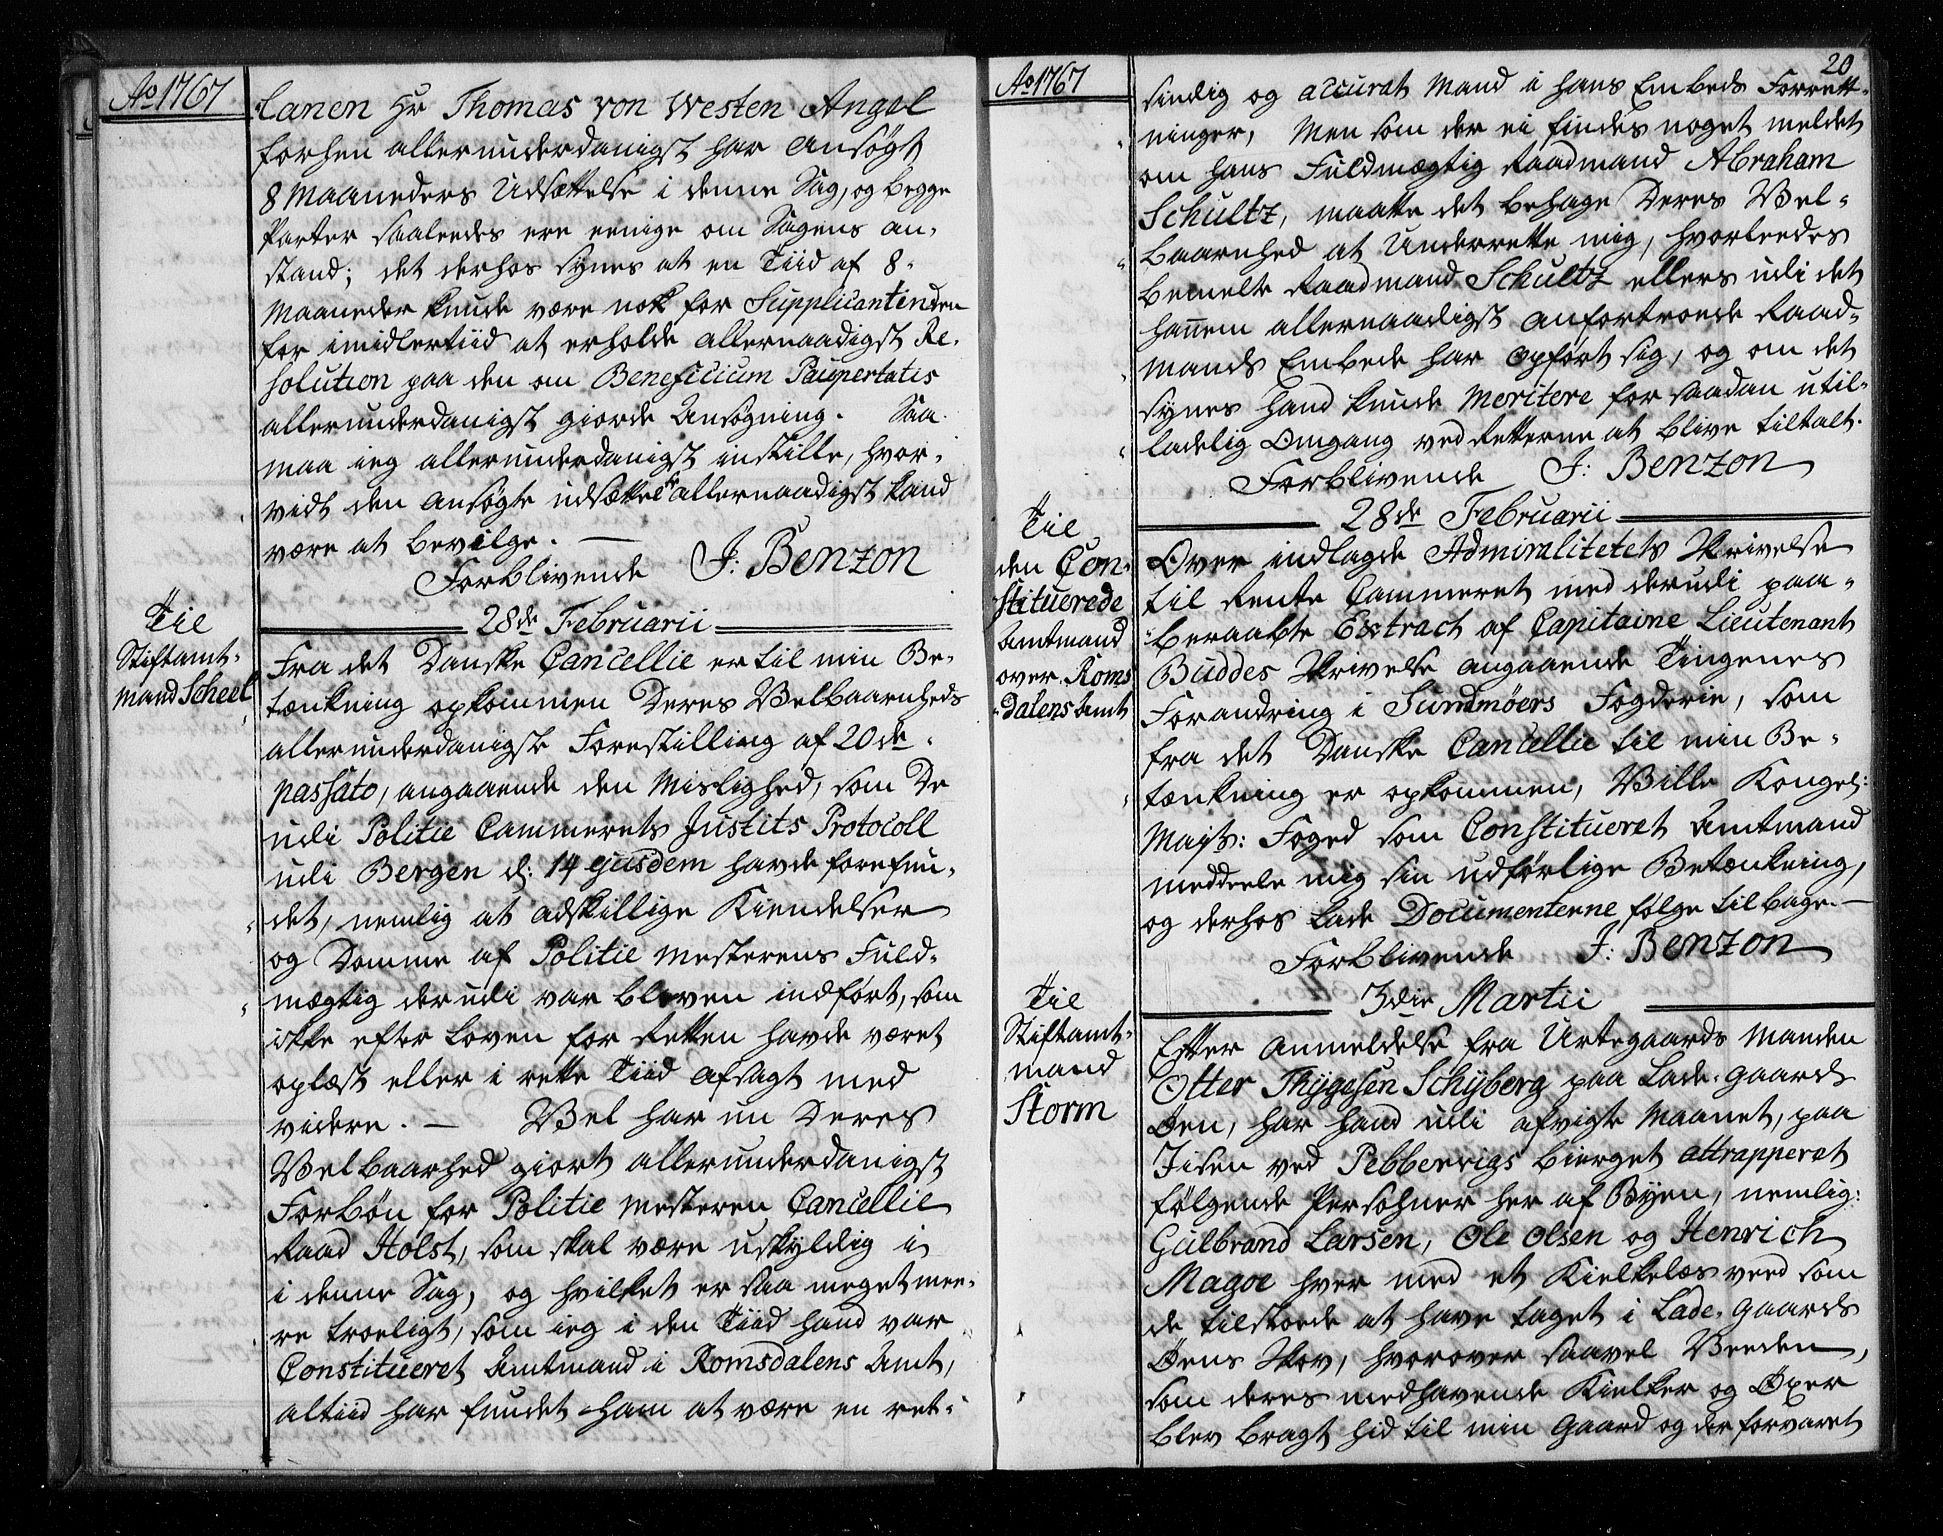 Ao 1767
Canen Hr Thomas von Westen Angel
forhen allerunderdanigst har ansøgt
8 Maaneders Udsættelse i denne Sag, og begge
Parter saaleedes ere eenige om Sagens an-
stand; det derhos synes at en Tiid af 8
Maaneder kunde være nok for Supplicantinden
for imidlertiid at erholde allernaadigst Re-
solution paa den om Beneficium Paupertatis
allerunderdanigst giorde Ansøgning. Saa
maa ieg allerunderdanigst instille, hvor-
vidt den ansøgte udsættelse allernaadigst kand
være at bevilge. —
Forblivende J: Benzon
Til
Stiftamt-
mand Scheel
28de Februarii
Fra det Danske Cancellie er til min Be-
tænkning opkommen Deres Velbaarnheds
allerunderdanigste Forestilling af 20de
passato, angaaende den Mislighed, som De
udi Politie Cammerets Justits Protocoll
udi Bergen d: 14 ejusdem havde forefun-
det, nemlig at adskillige Kiendelser
og Domme af Politie Mesterens Fuld-
mægtig derudi var bleven indført, som
ikke efter Loven for Retten havde været
oplæst eller i rette Tiid afsagt med
videre. — Vel har nu Deres
Velbaarhed giort allerunderdanigst
Forbøn for Politie Mesteren Cancellie
Raad Holst, som skal være uskyldig i
i denne Sag, og hvilket er saa meget mee-
re troeligt, som ieg i den Tiid hand var
Constitueret Amtmand i Romsdalens Amt,
altiid har fundet ham at være en ret-
Ao 1767
20
sindig og accurat Mand i hans Embeds Forrett-
ninger, Men som der ei findes noget meldet
om hans Fuldmægtig Raadmand Abraham
Schultz, maatte det behage Deres Vel-
baarnhed at Underrette mig, hvorleedes
bemelte Raadmand Schultz ellers udi det
hannem allernaadigst anfortroede Raad-
mands Embede har opført sig, og om det
synes hand kunde Meritere for saadan util-
ladelig Omgang ved Retterne at blive tiltalt.
Forblivende J: Benzon
Til
den Con-
stituerede
Amtmand
over Roms
dalens Amt
28de Februarii
Over indlagde Admiralitetets Skrivelse
til Rente Cammeret med derudi paa-
beraabte Extract af Capitaine Lieutenant
Buddes Skrivelse angaaende Tingenes
Forandring i Sundmøers Fogderie, som
fra det Danske Cancellie til min Be-
tænkning er opkommen, Ville Kongel:
Majts: Foged som Constitueret Amtmand
meddeele mig sin udførlige Betænkning,
og derhos lade Documenterne følge tilbage. —
Forblivende J: Benzon
Til
Stiftamt-
mand
Storm
3die Martii
Efter Anmeldelse fra Urtegaards Manden
Otter Thygesen Schyberg paa Lade-gaards
Øen, har hand udi afvigte Maanet, paa
Jisen ved Pebbervigs bierget attrapperet
følgende Persohner her af Byen, nemlig:
Gulbrand Larsen, Ole Olsen og Henrich
Magoe hver med et Kielkelæs veed som
de tilstoede at have taget i Lade-gaards
Øens Skov, hvorover saavel Veeden,
som deres medhavende Kielker og Øxer
blev bragt hid til min Gaard og der forvaret